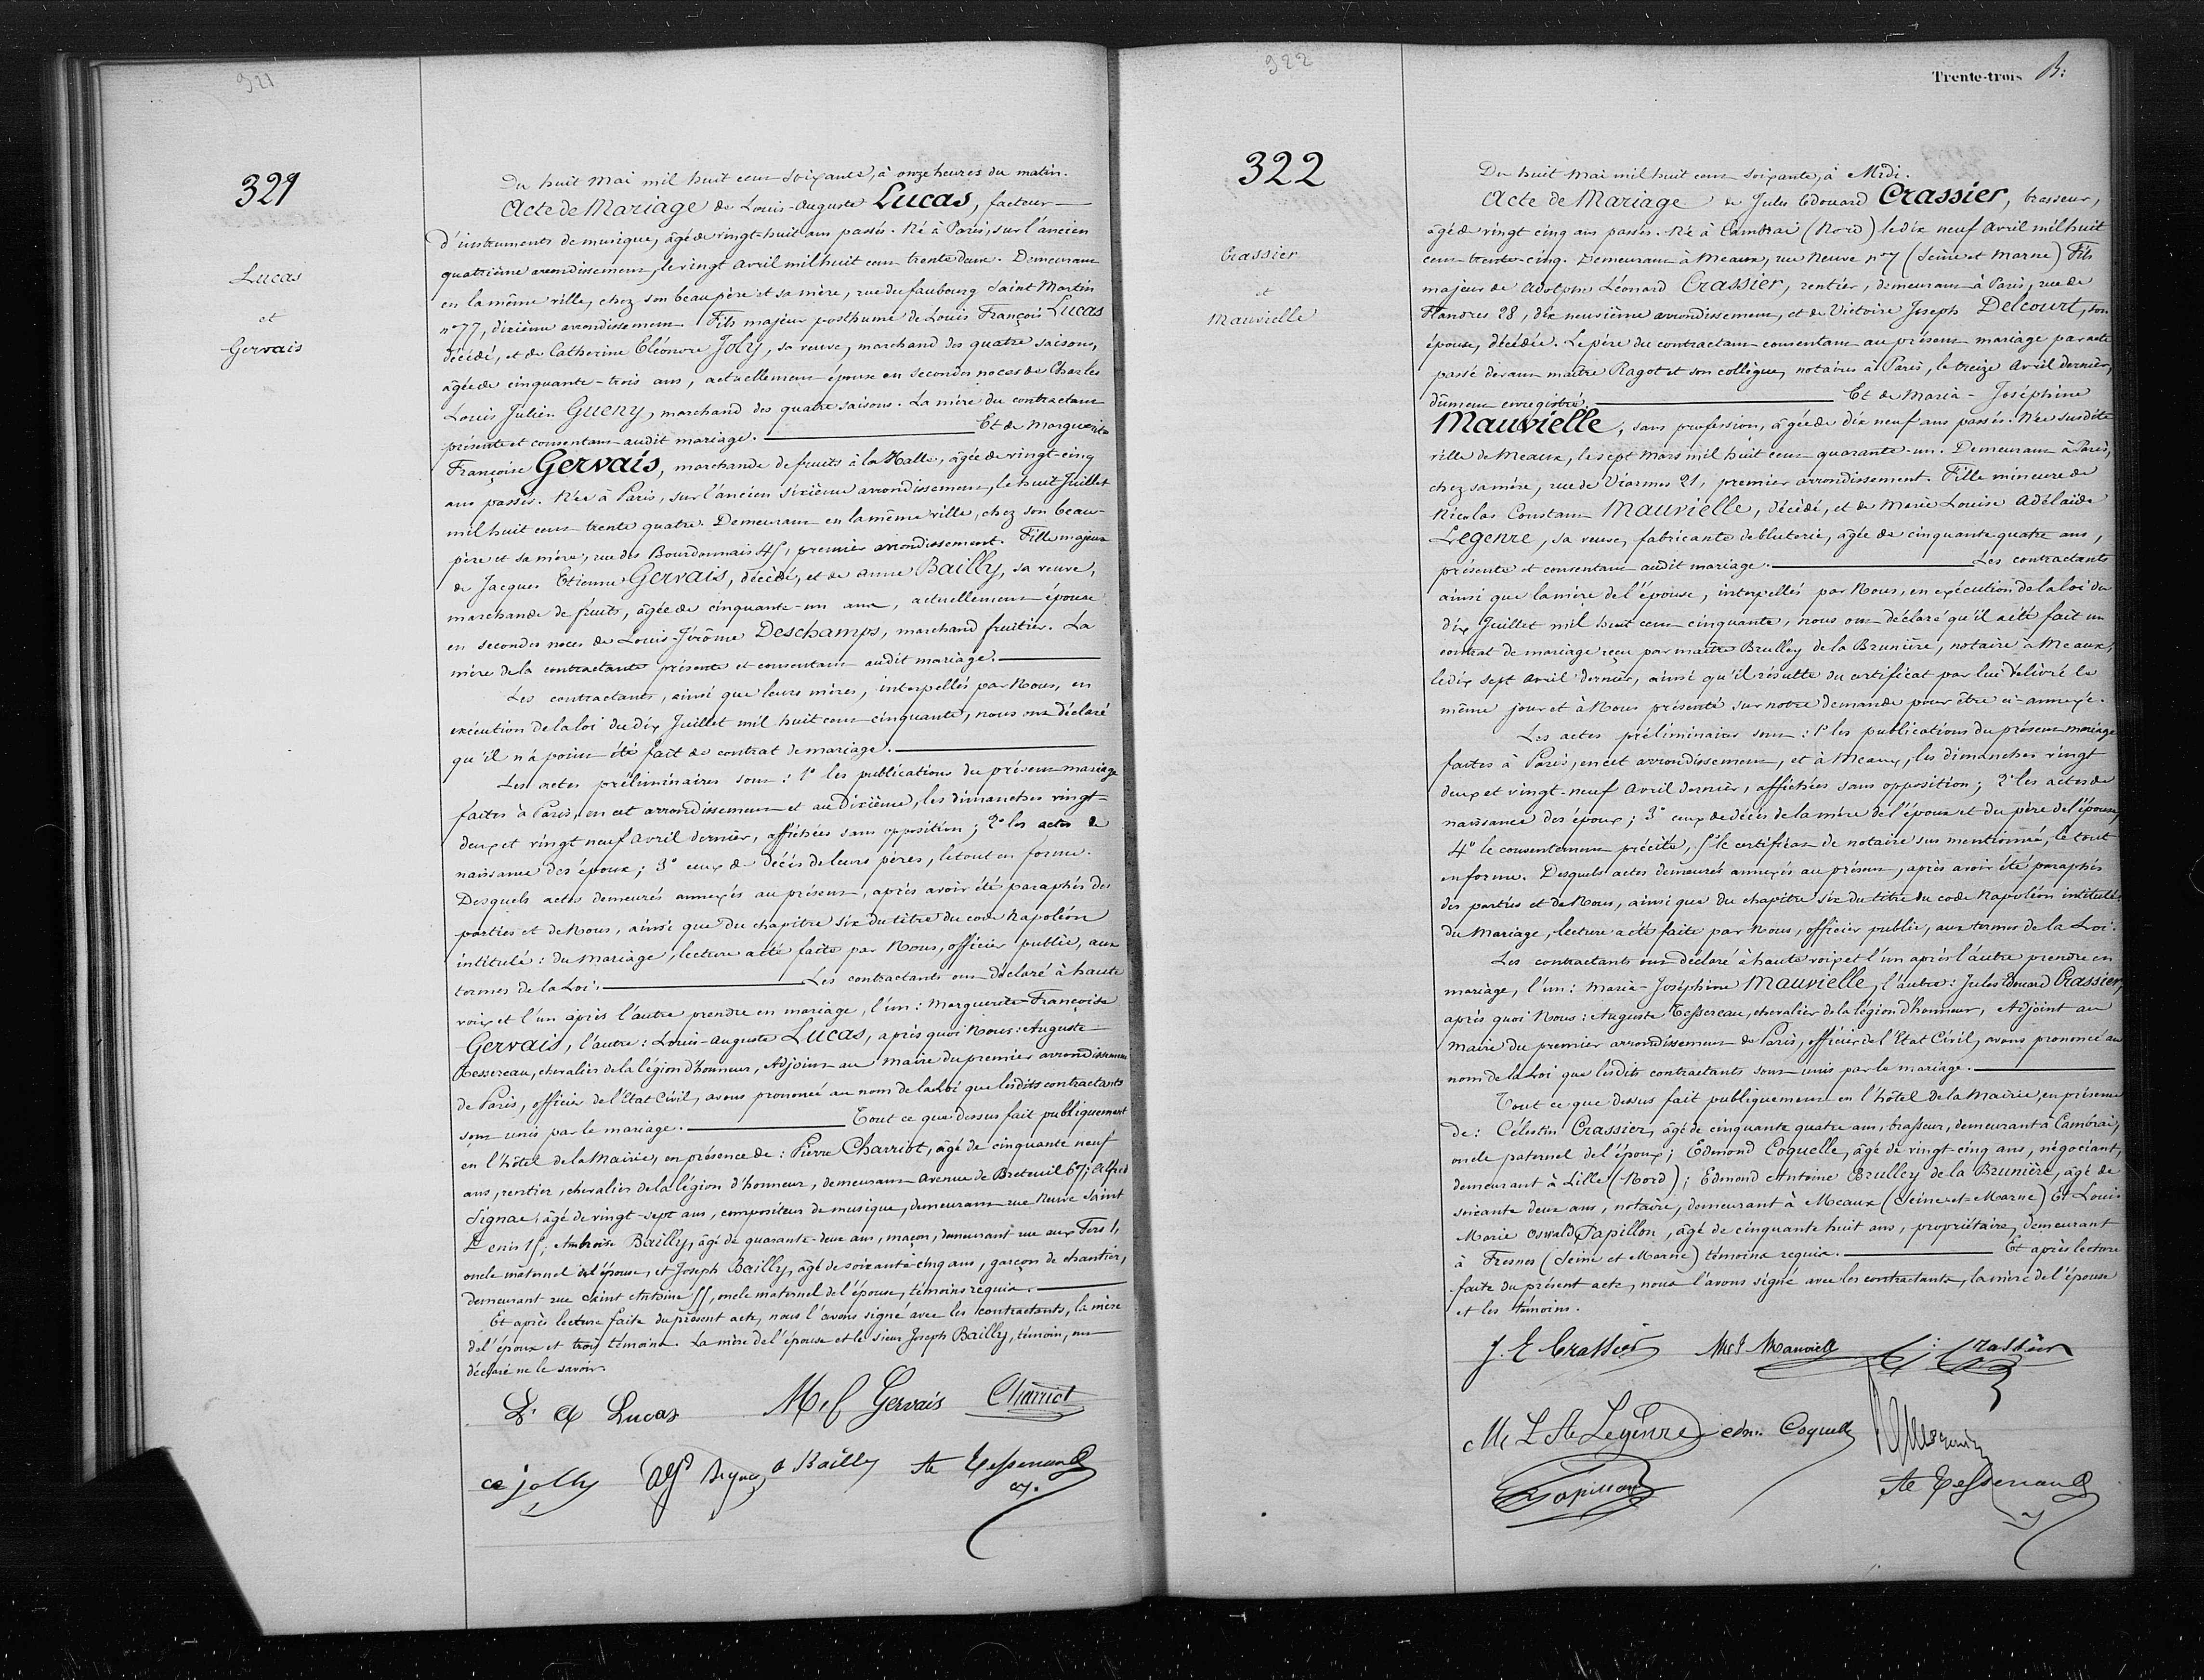 321
321
Lucas
et
Gervais
Du huit Mai mil huit cent soixante, à onze heures du matin.
Acte de Mariage de Louis-Auguste Lucas, facteur
d'instruments de musique, âgé de vingt-huit ans passés. Né à Paris, sur l'ancien
quatrième arrondissement, le vingt Avril mil huit cent trente deux. Demeurant
en la même ville, chez son beau père et sa mère, rue du faubourg Saint Martin
n° 77, dixième arrondissement. Fils majeur posthume de Louis François Lucas
décédé, et de Catherine Eléonore Joly, sa veuve, marchand des quatre saisons,
âgée de cinquante-trois ans, actuellement épouse en secondes noces de Charles
Louis Julien Gueny, marchand des quatre saisons. La mère du contractant
présente et consentant audit mariage. Et de Marguerite
Françoise Gervais, marchande de fruits à la Halle, âgée de vingt-cinq
ans passés. Née à Paris, sur l'ancien sixième arrondissement, le huit Juillet
mil huit cent trente quatre. Demeurant en la même ville, chez son beau-
père et sa mère, rue des Bourdonnais 45, premier arrondissement. Fille majeure
de Jacques Etienne Gervais, décédé, et de Anne Bailly, sa veuve,
marchande de fruits, âgée de cinquante-un ans, actuellement épouse
en secondes noces de Louis-Jérôme Deschamps, marchand fruitier. La
mère de la contractante présente et consentant audit mariage.
Les contractants, ainsi que leurs mères, interpellés par Nous, en
exécution de la loi du dix Juillet mil huit cent cinquante, nous ont déclaré
qu'il n'a point été fait de contrat de mariage.
Les actes préliminaires sont : 1° les publications du présent mariage
faites à Paris, en cet arrondissement et au Dixième, les dimanches vingt-
deux et vingt neuf Avril dernier, affichées sans opposition ; 2° les actes de
naissance des époux ; 3° ceux de décès de leurs pères, le tout en forme.
Desquels actes demeurés annexés au présent, après avoir été paraphés des
parties et de Nous, ainsi que du chapitre six du titre du code Napoléon
intitulé : du Mariage, lecture a été faite par Nous, officier public, aux
termes de la Loi. Les contractants ont déclaré à haute
voix et l'un après l'autre prendre en mariage, l'un : Marguerite-Françoise
Gervais, l'autre : Louis-Auguste Lucas, après quoi Nous : Auguste
Tessereau, chevalier de la légion d'honneur, Adjoint au Maire du premier arrondissement
de Paris, officier de l'Etat Civil, avons prononcé au nom de la Loi que lesdits contractants
sont unis par le mariage. Tout ce que dessus fait publiquement
en l'hôtel de la Mairie, en présence de : Pierre Charriot, âgé de cinquante neuf
ans, rentier, chevalier de la légion d'honneur, demeurant Avenue de Breteuil 67 ; Alfred
Signac, âgé de vingt-sept ans, compositeur de musique, demeurant rue Neuve Saint
Denis 15 ; Ambroise Bailly, âgé de quarante-deux ans, maçon, demeurant rue aux Fers 1,
oncle maternel de l'épouse, et Joseph Bailly, âgé de soixante-cinq ans, garçon de chantier,
demeurant rue Saint Antoine 55, oncle maternel de l'épouse, témoins requis.
Et après lecture faite du présent acte, nous l'avons signé avec les contractants, la mère
de l'époux et trois témoins. La mère de l'épouse et le sieur Joseph Bailly, témoin, ont
déclaré ne le savoir.
L. A Lucas M. f Gervais Charriot
ce jolly Alf'd Signac a Bailly Ate Tessereau
322
Trente-trois
322
Crassier
et
Mauvielle
Du huit Mai mil huit cent soixante, à Midi.
Acte de Mariage de Jules Edouard Crassier, brasseur,
âgé de vingt cinq ans passés. Né à Cambrai (Nord) le dix neuf Avril mil huit
cent trente-cinq. Demeurant à Meaux, rue Neuve n° 7 (Seine et Marne) Fils
majeur de Adolphe Léonard Crassier, rentier, demeurant à Paris, rue de
Flandres 28, dix neuvième arrondissement, et de Victoire Joseph Delcourt, son
épouse, décédée. Le père du contractant consentant au présent mariage par acte
passé devant maître Ragot et son collègue, notaires à Paris, le treize Avril dernier,
dûment enregistré. Et de Maria-Joséphine
Mauvielle, sans profession, âgée de dix neuf ans passés. Née susdite
ville de Meaux, le sept Mars mil huit cent quarante-un. Demeurant à Paris,
chez sa mère, rue de Viarmes 21, premier arrondissement. Fille mineure de
Nicolas Constant Mauvielle, décédé, et de Marie Louise Adélaïde
Legenre, sa veuve, fabricante de bluterie, âgée de cinquante quatre ans,
présente et consentant audit mariage. Les contractants
ainsi que la mère de l'épouse, interpellés par Nous, en exécution de la loi du
dix Juillet mil huit cent cinquante, nous ont déclaré qu'il a été fait un
contrat de mariage reçu par maître Brulley de la Brunière, notaire à Meaux,
le dix sept Avril dernier, ainsi qu'il résulte du certificat par lui délivré le
même jour et à Nous présenté sur notre demande pour être ci-annexé.
Les actes préliminaires sont : 1° les publications du présent mariage
faites à Paris, en cet arrondissement, et à Meaux, les dimanches vingt
deux et vingt-neuf Avril dernier, affichées sans opposition ; 2° les actes de
naissance des époux ; 3° ceux de décès de la mère de l'époux et du père de l'épouse,
4° le consentement précité, 5° le certificat de notaire sus mentionné, le tout
en forme. Desquels actes demeurés annexés au présent, après avoir été paraphés
des parties et de Nous, ainsi que du chapitre six du titre du code Napoléon intitulé,
du Mariage, lecture a été faite par Nous, officier public, aux termes de la Loi.
Les contractants ont déclaré à haute voix et l'un après l'autre prendre en
mariage, l'un : Maria-Joséphine Mauvielle, l'autre : Jules Edouard Crassier,
après quoi Nous : Auguste Tessereau, chevalier de la légion d'honneur, Adjoint au
Maire du premier arrondissement de Paris, officier de l'Etat Civil, avons prononcé au
nom de la Loi que lesdits contractants sont unis par le mariage.
Tout ce que dessus fait publiquement en l'hôtel de la Mairie, en présence
de : Célestin Crassier, âgé de cinquante quatre ans, brasseur, demeurant à Cambrai,
oncle paternel de l'époux ; Edmond Coquelle, âgé de vingt-cinq ans, négociant,
demeurant à Lille (Nord) ; Edmond Antoine Brulley de la Brunière, âgé de
soixante deux ans, notaire, demeurant à Meaux (Seine et Marne) Et Louis
Marie Oswald Papillon, âgé de cinquante huit ans, propriétaire, demeurant
à Fresnes (Seine et Marne) témoins requis. Et après lecture
faite du présent acte, nous l'avons signé avec les contractants, la mère de l'épouse
et les témoins.
J. E Crassier M J Mauvielle Crassier
M L Ade Legenre edm. Coquelle
Papillon Ate Tessereau